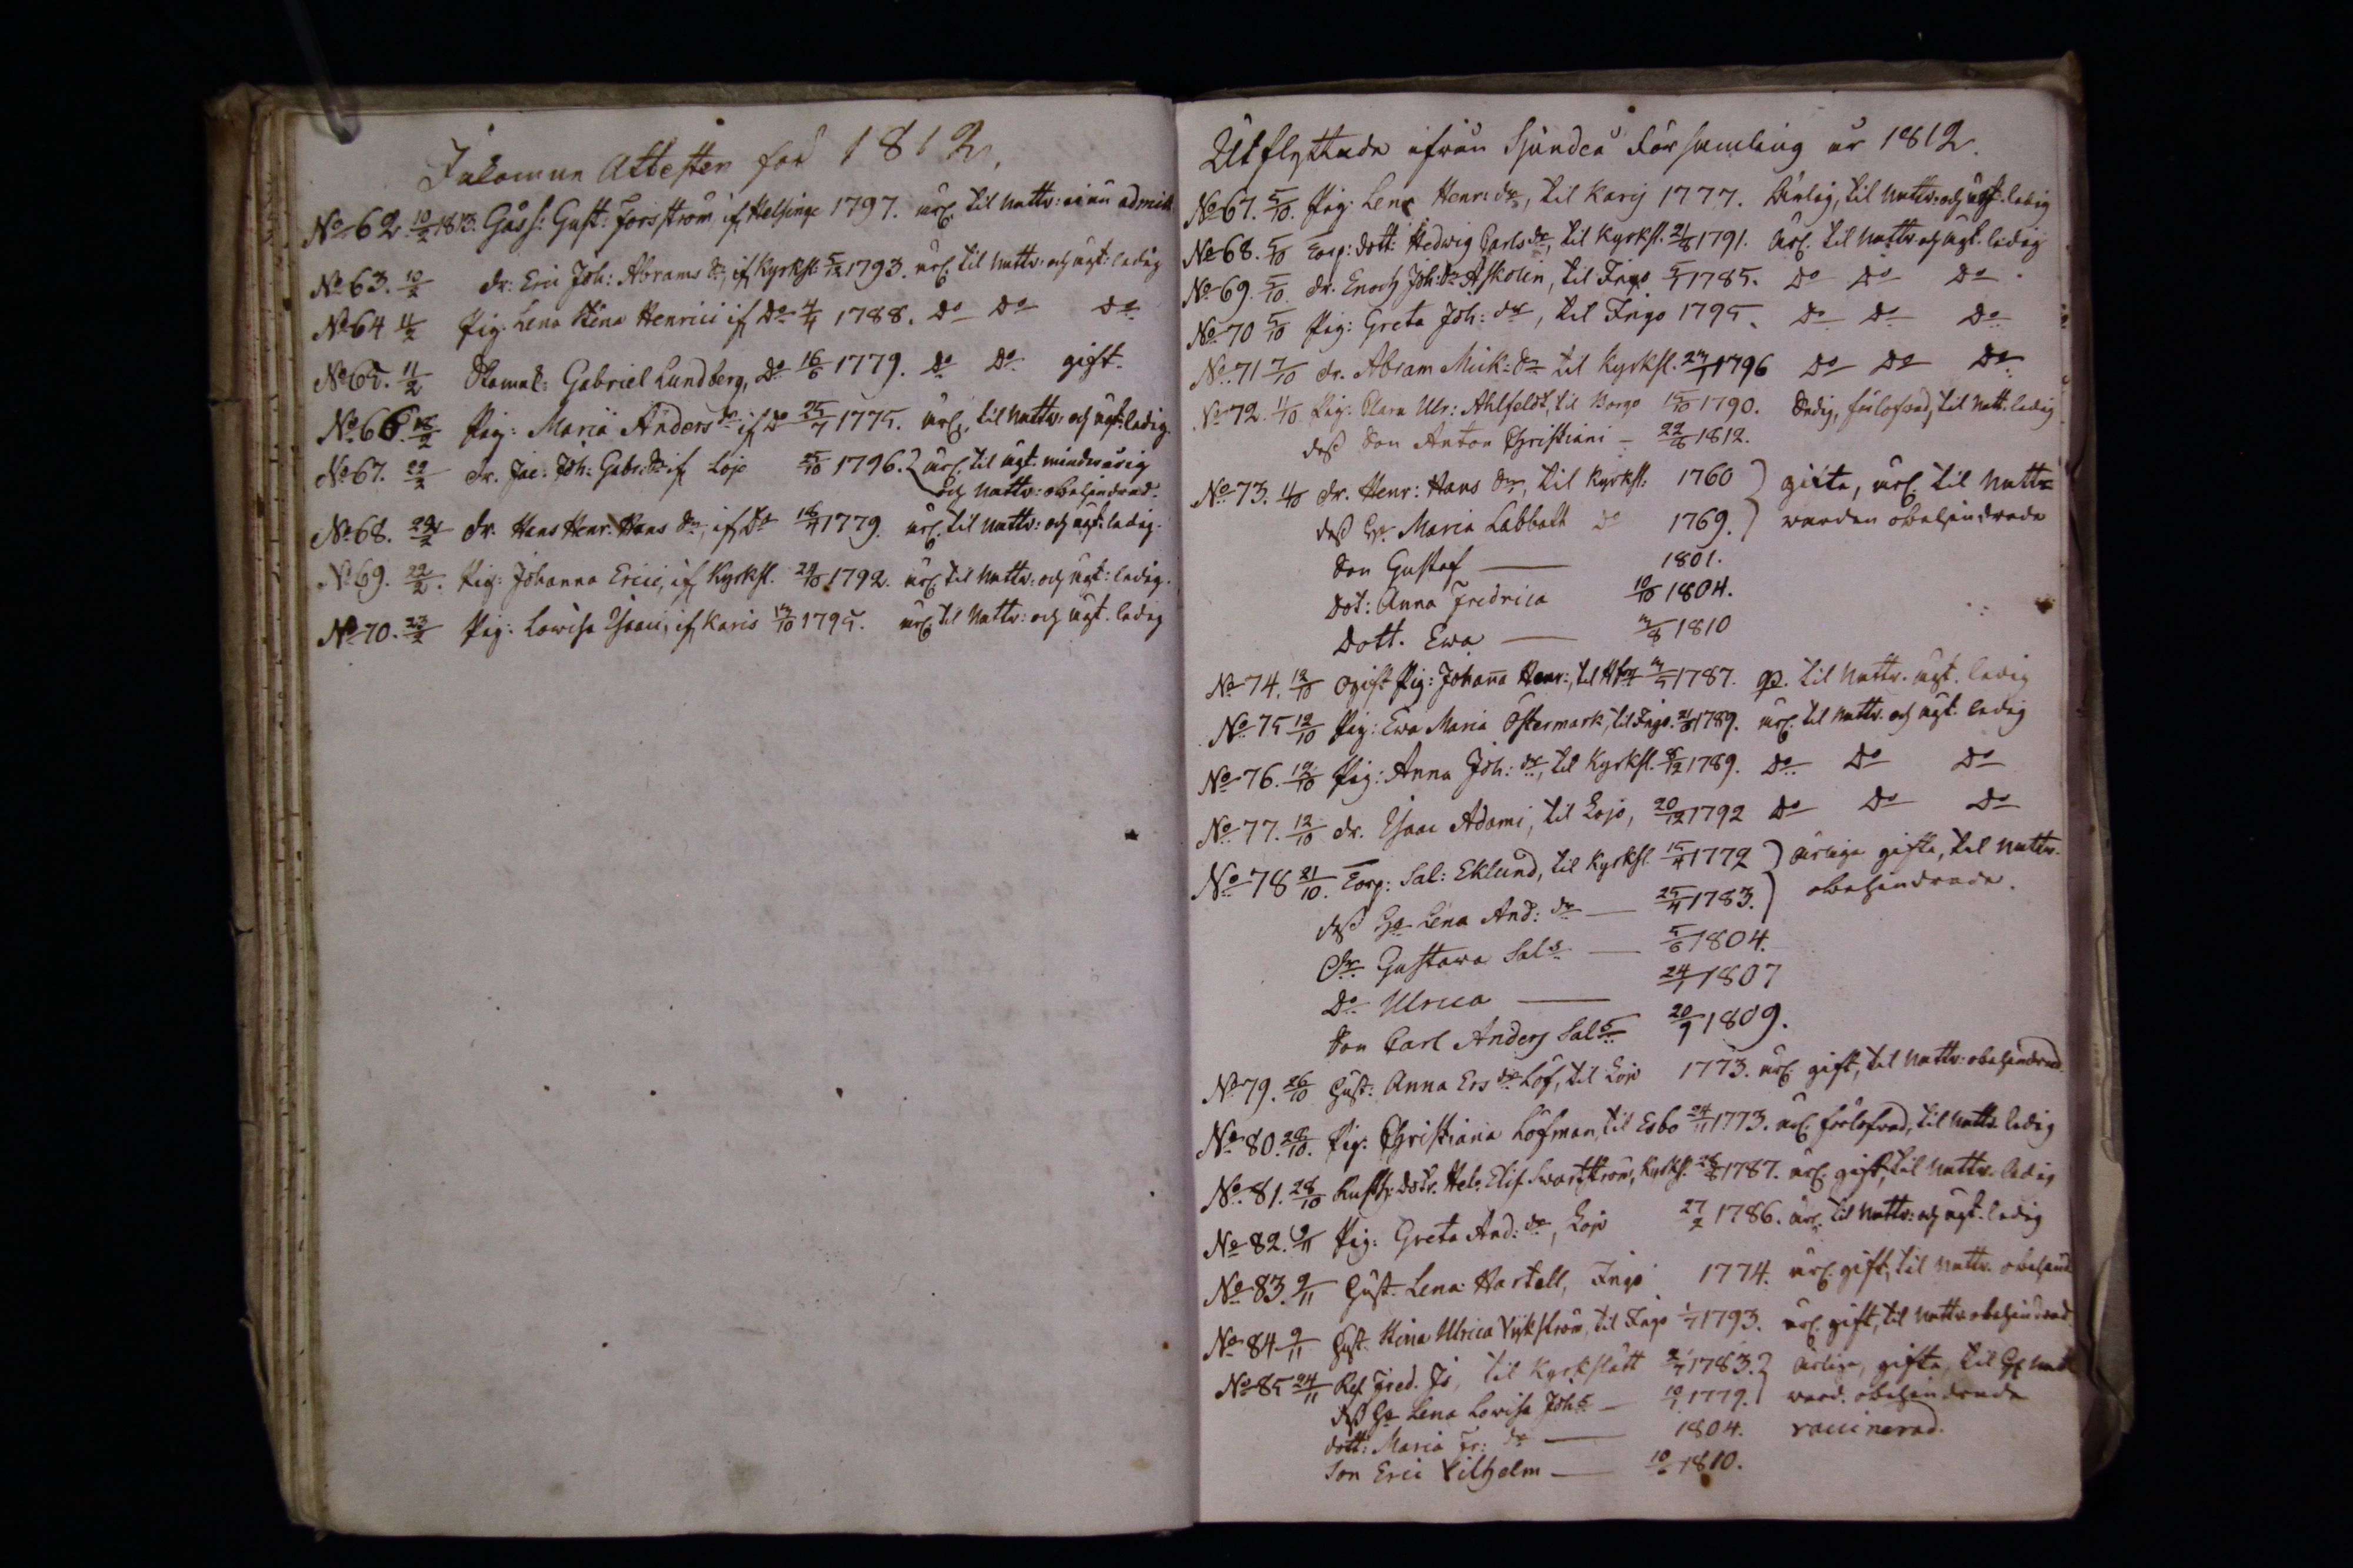 Inkomne Attester för 1812.
No 62. 10/2 1813. Gåss: Gust: Forsström, if Helsinge 1797. ärl. til nattv: ei än admitt
No 63. 10/2 Dr: Eric Joh: Abrams Sn, if Kyrksl: 5/12 1793. ärl. til nattv: och ägt: ledig
No 64 11/2 Pig. Lena Stina Henrici if Do 4/4 1788. Do Do Do
No 65. 11/2 Gabriel Lundberg, Do 16/6 1779. Do Do gift.
No 66. 18/2 Pig: Maria Anders dr if Do 25/7 1775. ärl, til nattv: och ägt: ledig.
No 67. 22/2 Dr. Jac. Joh: Gabr: Sn if Lojo 25/10 1796. ärl. til ägt. minderårig
och nattv: obehindrad.
No 68. 22/2 Dr. Hans Henr: Hans Sn, if Do 18/4 1779. ärl. til nattv: och ägt: ledig.
No 69. 22/2. Pig: Johanna Erici, if Kyrksl. 24/10 1792. ärl. til nattv: och ägt: ledig.
No 70. 23/2 Pig: Lowisa Isaci, if Karis 13/10 1795. ärl. til nattv: och ägt. ledig
Utflyttade ifrån Sjundeå Församling år 1812.
No 67. 5/10. Pig: Lena Henr: dr, til Karis 1777. ärlig, til nattv: och ägt. ledig
No 68. 5/10 Torp: dott: Hedwig Carls dr, til Kyrksl. 21/8 1791. ärl. til nattv och ägt. ledig
No 69. 5/10. Dr. Enoch Joh: Sn Askolin, til Ingo 5/1 1785. Do Do Do.
No 70 5/10 Pig: Greta Joh: dr, til Ingo 1795. Do Do Do
No 71 7/10 Dr. Abram Mick: Sn til Kyrksl. 1796 Do Do Do
No 72. 11/10 Pig: Clara Ulr: Ahlfeldt, til Borgo 15/10 1790. förlofvad, til natt. ledig
dess Son Anton Christiani - 22/8 1812.
No 73. 11/10 Dr. Henr: Hans Sn, til Kyrksl: 1760 gifta, ärl. til natt=
dess Hu Maria Labbatt Do 1769. warden obehindrade
Son Gustaf 1801.
Dot: Anna Fredrica 10/10 1804.
Dott. Ewa 1810
No 74. 12/10 ogift Pig: Johanna Henr:, til 1787. til nattv. ägt. ledig
No 75 12/10 Pig: Ewa Maria Östermark, til Ingo. 1789. ärl. til nattv. och ägt. ledig
No 76. 12/10 Pig: Anna Joh: dr, til Kyrksl. 8/12 1789. Do Do Do
No 77. 12/10 Dr. Isaac Adami, til Lojo, 20/12 1792 Do Do Do
No 78 21/10. Torp: Sal: Eklund, til Kyrksl. 15/4 1772 ärliga gifta, til nattv.
dess Hu Lena And: dr 25/4 1783. obehindrade.
Dr. Gustava Sals 5/6 1804.
Do Ulrica 24/1 1807
Son Carl Anders Sals 20/9 1809.
No 79. 26/10 Hust: Anna Ers dr Löf, til Lojo 1773. ärl. gift, til nattv: obehindrad.
No 80. 28/10. Pig: Christiana Löfman, til Esbo 24/11 1773. ärl. förlofvad, til nattv. ledig
No 81. 28/10 Rusth: dotr. Hel: Elis. Swartström, Kyrksl. 28/8 1787. ärl. gift, til nattv. ledig
No 82. 9/11 Pig: Greta And: dr, Lojo 27/2 1786. ärl. til nattv: och ägt. ledig
No 83. 9/11 Hust. Lena Hartell, Ingo 1774. ärl. gift, til nattv. obehind
No 84 9/11 Hust. Stina Ulrica Vikström, til Ingo 1/7 1793. ärl. gift, til nattv obehindrad.
No 85 24/11 Fred. Is, til Kyrkslätt 1783. ärliga, gifta, til
dess Hu Lena Lowisa Johs 1779. ward. obehindrade
dott: Maria Fr: dr 1804. vaccinerad.
Son Eric Vilhelm 1810.